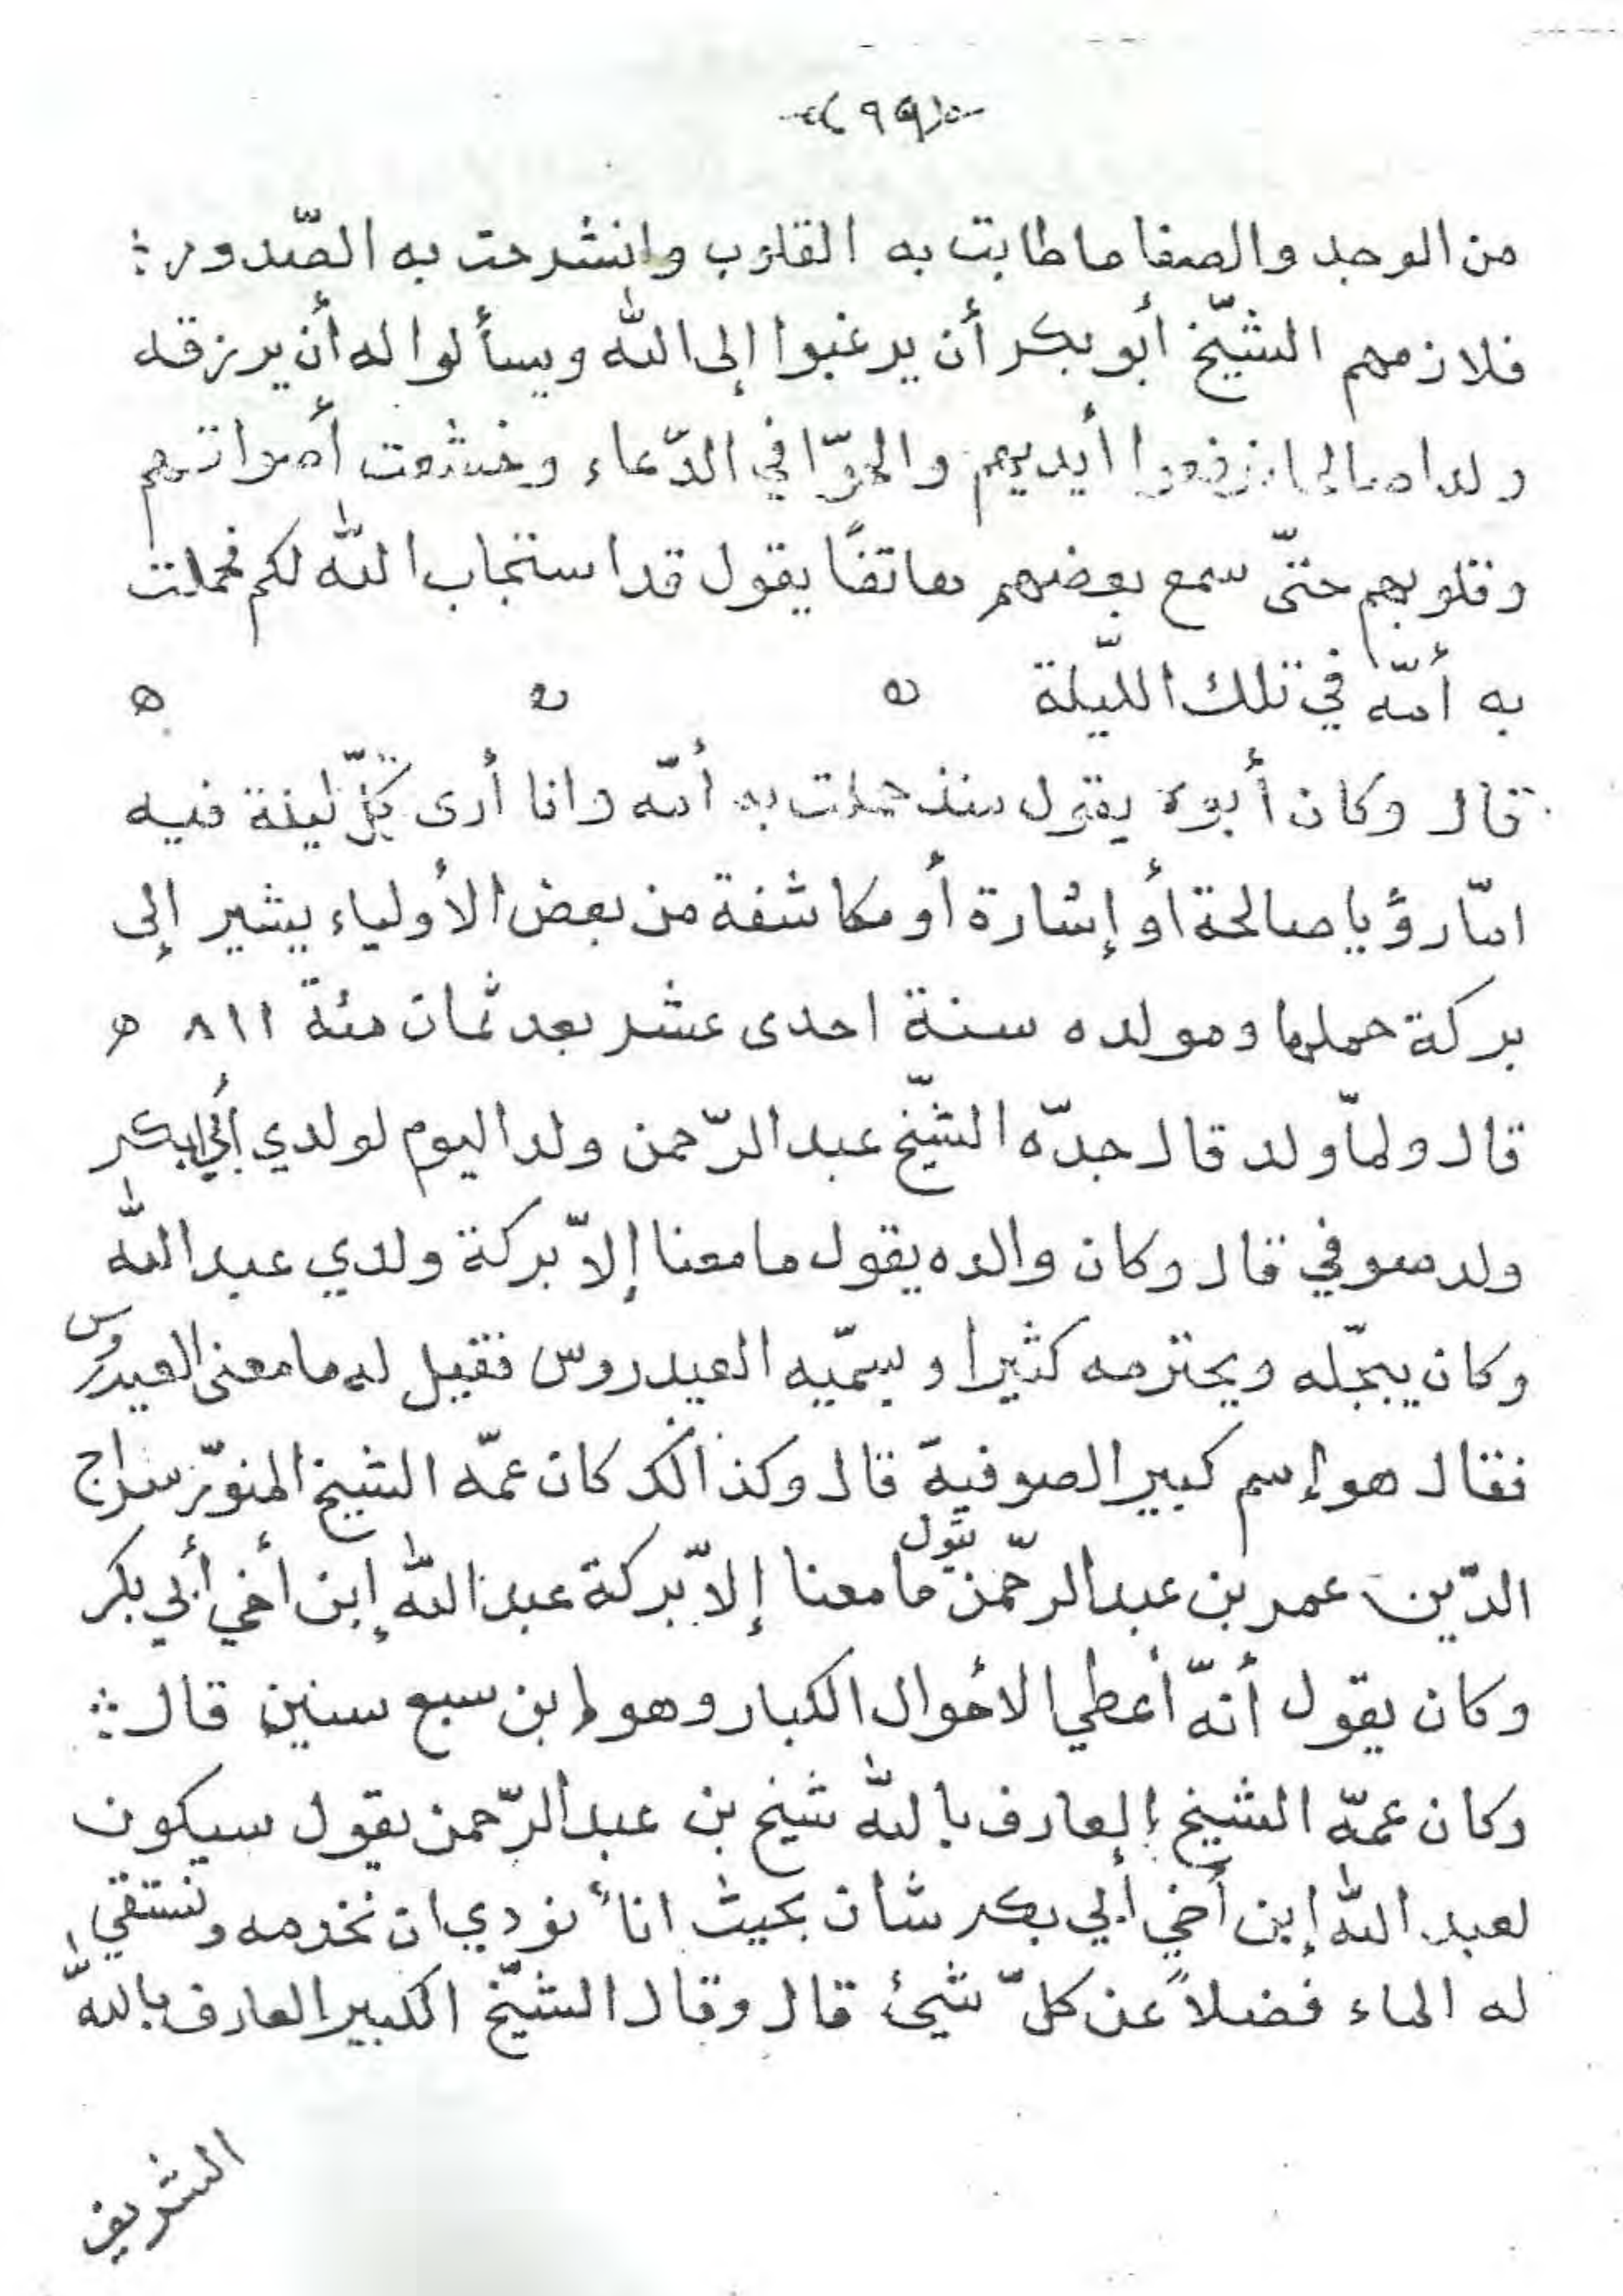 ٩٩
من الوجد والصفا ما طابت به القلوب وانشرحت به الصّدور :
فلازمهم الشّيخ أبو بكر أن يرغبوا إلى الله ويسألوا له أن يرزقه
ولدا صالحا فرفعوا أيديهم والحوّا في الدّعاء وخشعت أصواتهم
وقلوبهم حتّى سمع بعضهم هاتفًا يقول قد استجاب الله لكم فحملت
به أمّه في تلك اللّيلة ه ه ه
قال وكان أبوه يقول منذ حملت به أمّه وانا أرى كلّ ليلة فيه
امّا رؤيا صالحة أو إشارة أو مكاشفة من بعض الأولياء يشير إلى
بركة حملها ومولده سنة احدى عشر بعد ثمان مئة ٨١١ ه
قال ولمّا ولد قال جدّه الشّيخ عبد الرّحمن ولد اليوم لولدي أبي بكر
ولد صوفي قال وكان والده يقول ما معنا إلاّ بركة ولدي عبد الله
وكان يبجّله ويحترمه كثيرا ويسمّيه العيدروس فقيل له ما معنى العيدروس
فقال هو إسم كبير الصوفيّة قال وكذالك كان عمّه الشيخ المنوّر سراج
الدّين عمر بن عبد الرّحمن يقول ما معنا إلاّ بركة عبد الله إبن أخي أبي بكر
وكان يقول أنّه أعطي الأحوال الكبار وهو إبن سبع سنين قال :
وكان عمّه الشيخ العارف بالله شيخ بن عبد الرّحمن يقول سيكون
لعبد الله إبن أخي أبي بكر شأن بحيث انا نودي ان نخدمه ونستقي
له الماء فضلاً عن كلّ شيئ قال وقال الشّيخ الكبير العارف بالله
الشريف